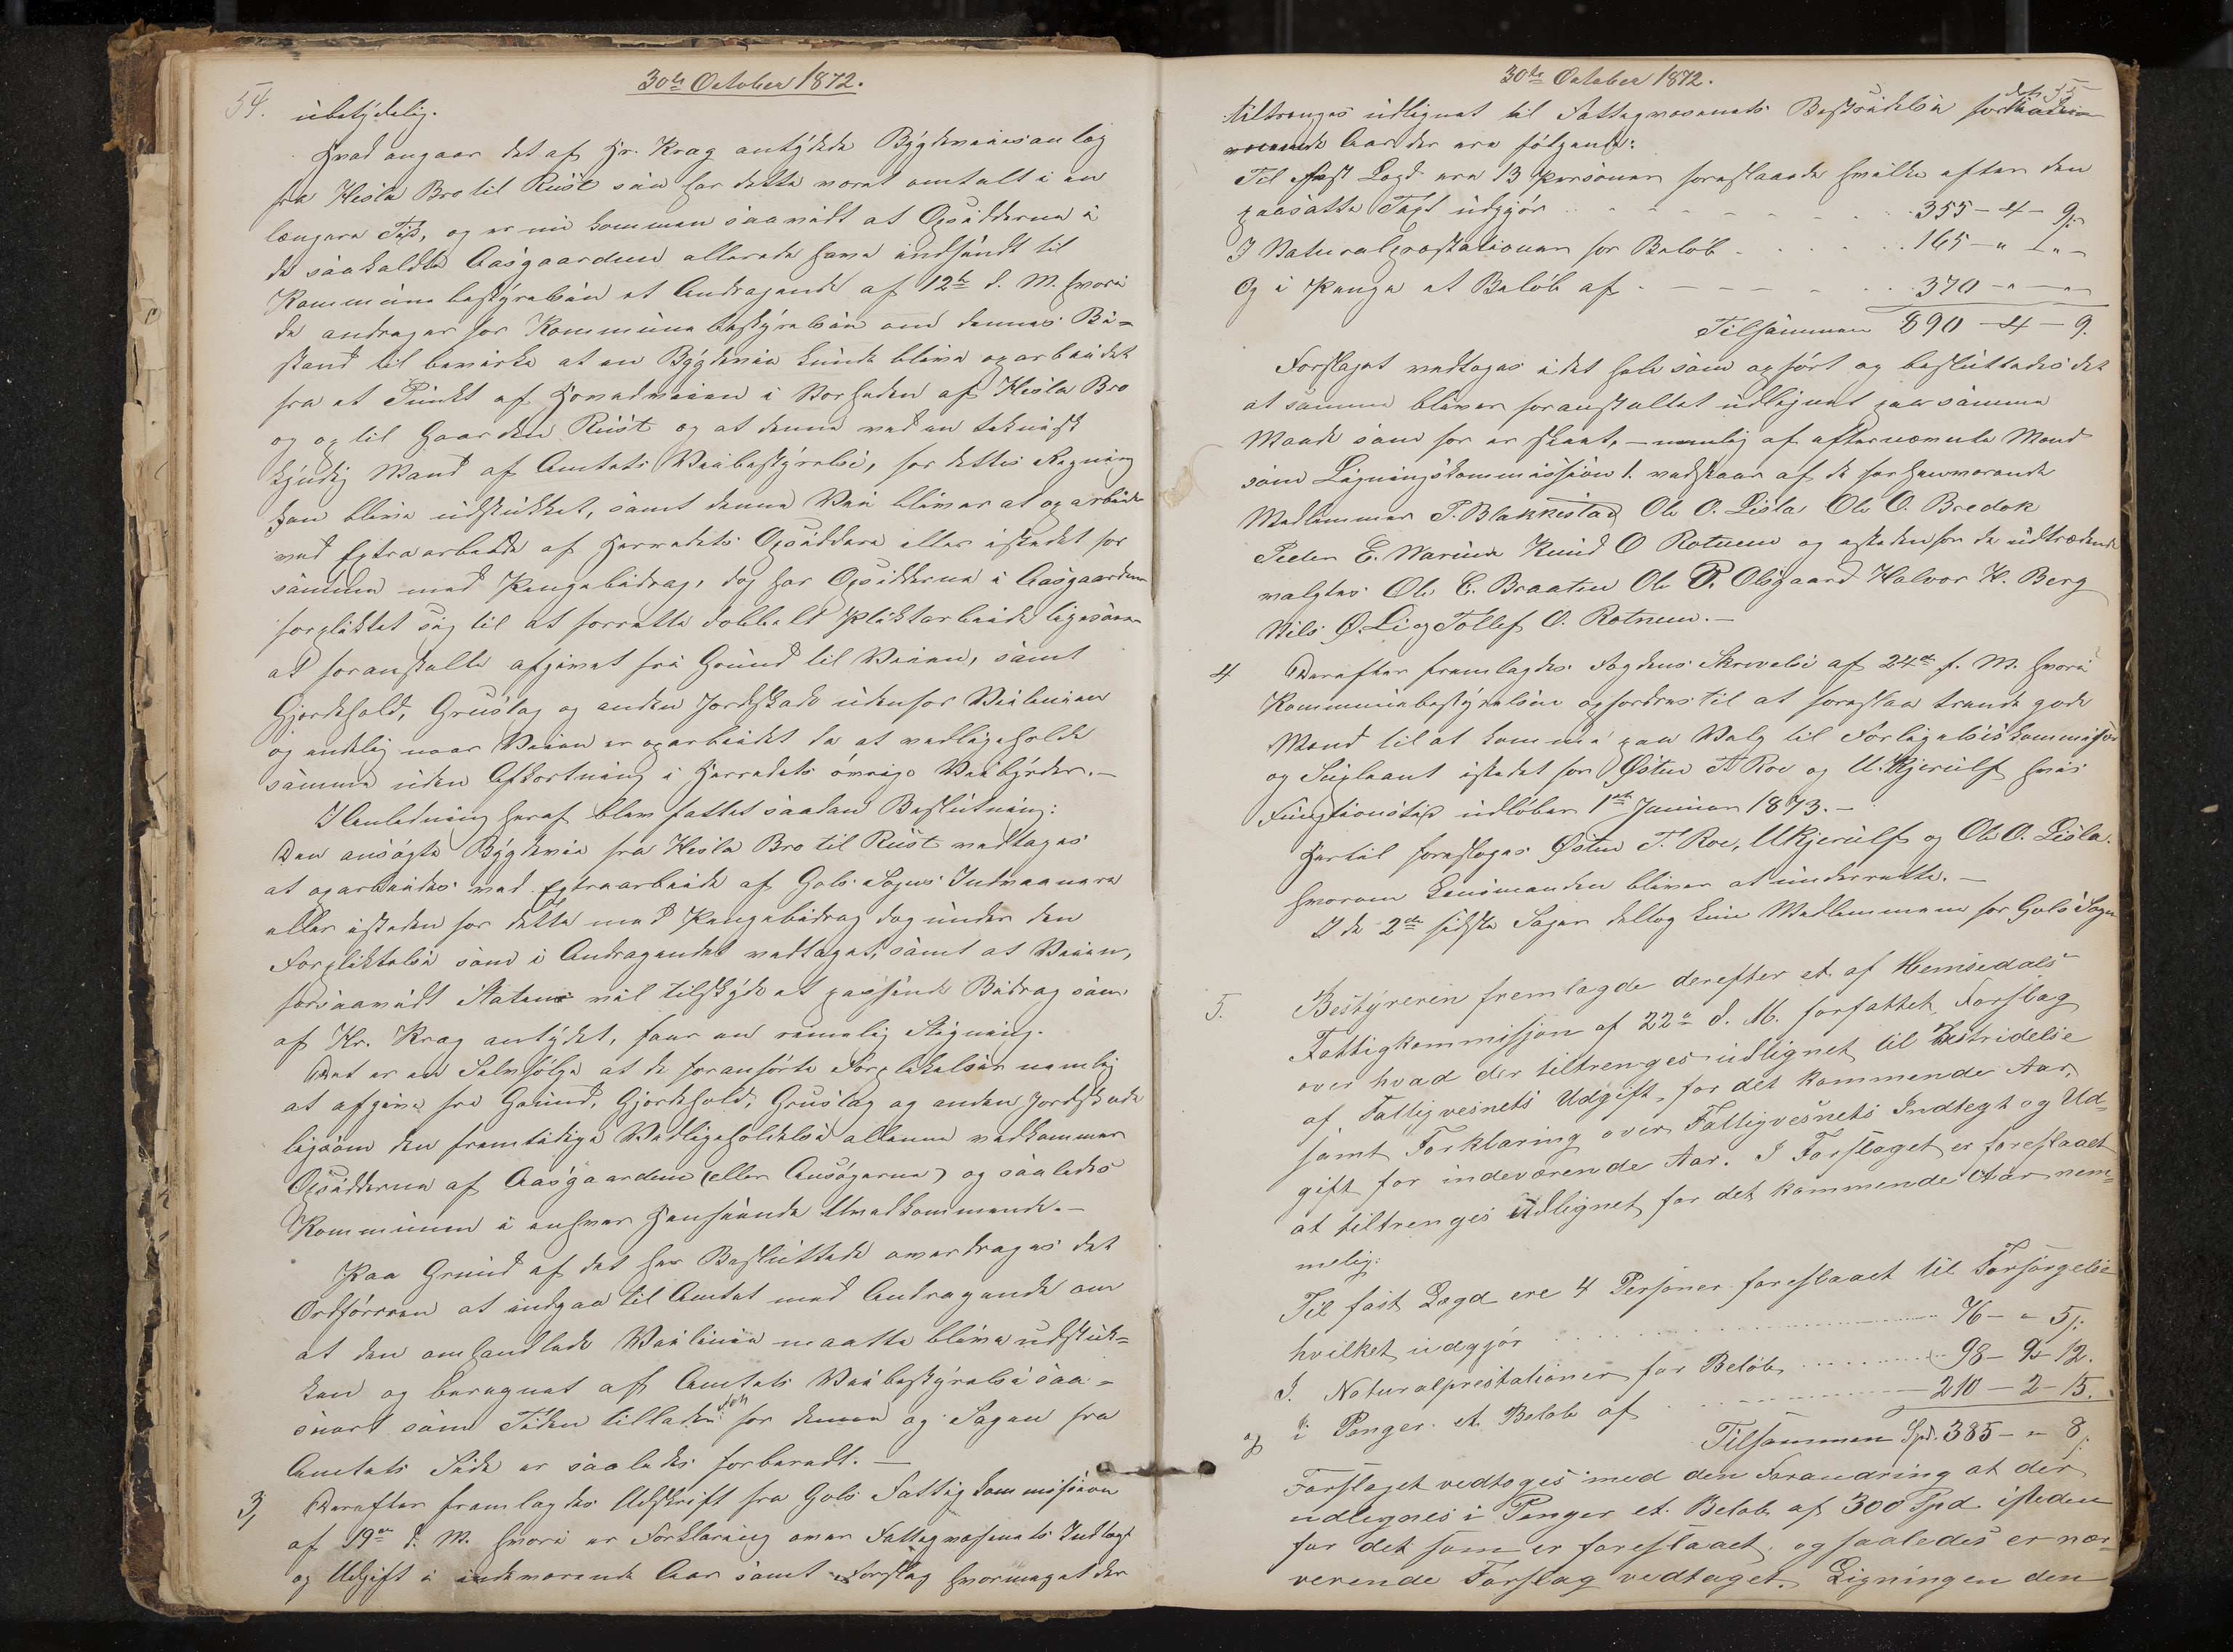 54.
30te October 1872.
ubetydelig.
Hvad angaar det af Hr. Krag antydede Bygdeveiesanlæg
fra Hesla Bro til Rust saa har dette været omtalt i en
længere Tid, og er nu kommen saavidt at Opsidderne i
de saakaldte Aasgaardene allerede have indsendt til
Kommunebestyrelsen et Andragende af 12te d. M. hvori
de andrager for Kommunebestyrelsen om dennes Bi-
stand til bevirke at en Bygdevei kunde blive oparbeidet
fra et Punkt af Hovedveien i Nærheden af Hesla Bro
og op til Gaarden Rust og at denne ved en teknisk
kyndig Mand af Amtets Veibestyrelse, for dettes Regning
kan blive udstukket, samt denne Vei bliver at oparbeide
ved Extraarbeide af Herredets Opsiddere eller istedet for
samme med Pengebidrag, dog har Opsidderne i Aasgaardene
forpligtet sig til at forrette dobbelt Pliktarbeide ligesom
at foranstalte afgivet fri Grund til Veien, samt
Gjerdehold, Grustag og anden Jordskade udenfor Veilinien
og endelig naar Veien er oparbeidet da at vedligeholde
samme uden Afkortning i Herredets øvrige Veibyrder.—
I Anledning heraf blev fattet saadan Beslutning:
Den ansøgte Bygdevei fra Hesla Bro til Rust vedtages
at oparbeides ved Extraarbeide af Gols Sogns Indvaanere
eller isteden for dette med Pengebidrag dog under den
Forpliktelse som i Andragendet vedtaget, samt at Veien,
forsaavidt Staten vil tilskyde et passende Bidrag som
af Hr. Krag antydet, faar en rimelig Stigning.
Det er en Selvfølge at de foranførte Forpliktelser nemlig
at afgive fri Grund, Gjerdehold, Grustag og anden Jordskade
ligesom den fremtidige Vedligeholdelse allene vedkommer
Opsidderne af Aasgaardene (eller Ansøgerne) og saaledes
Kommunen i enhver Henseende Uvedkommende.—
Paa Grund af det her Besluttede overdrages det
Ordføreren at indgaa til Amtet med Andragende om
at den omhandlede Veilinie maatte blive udstuk-
ken og beregnet af Amtets Veibestyrelse saa-
snart som Tiden tillader det for denne og Sagen fra
Amtets Side er saaledes forberedt.—
3, Derefter fremlagdes Udskrift fra Gols Fattigkommission
af 19de d. M. hvori er Forklaring over Fattigvæsenets Indtægt
og Udgift i indeværende Aar samt Forslag hvormeget der
30te October 1872.
55
tiltrenges udlignet til Fattigvæsenets Bestridelse for det
Aar der ere følgende:
Til fast Lægd ere 13 Personer foreslaaede hvilke efter den
paasatte Taxt udgjør 355 - 4 - 9.
I Naturalprestationer for Beløb 165 - " - " -
Og i Penge et Beløb af 370 - " - "
Tilsammen 890 - 4 - 9.
Forslaget vedtoges i det hele som opført og besluttedes det
at samme bliver foranstaltet udlignet paa samme
Maade som før er skeet, – nemlig af efternævnte Mænd
som Ligningskommission 1. vedstaar af de forhenværende
Medlemmer P. Blakkestad Ole O. Lisla Ole O. Bredok
Peder E. Narum Knud O Rotnem og isteden for de udtrædende
valgtes Ole E. Braaten Ole P. Olsgaard Halvor H. Berg
Nils Ø. Li og Tollef O. Rotnem.—
4 Derefter fremlagdes Fogdens Skrivelse af 24de f. M. hvori
Kommunebestyrelsen opfordres til at foreslaa trende gode
Mænd til at komme paa Valg til Forligelseskommissær
og Suplæant istedet for Østen T Roe og U. Kjerulf hvis
Funktionstid udløber 1ste Januar 1873.—
Hertil foresloges Østen T. Roe, U Kjerulf og Ole O. Lisla.
hvorom Lensmanden bliver at underrette.—
I de 2de sidste Sager deltog kun Medlemmene for Gols Sogn
5. Bestyreren fremlagde derefter et af Hemsedals
Fattigkommisjon af 22de d. M. forfattet Forslag
over hvad der tiltrenges udlignet til Bestridelse
af Fattigvesnets Udgift, for det kommende Aar,
samt Forklaring over Fattigvesnets Indtegt og Ud-
gift for indeværende Aar. I Forslaget er foreslaaet
at tiltrenges Udlignet for det kommende Aar nem-
melig:
Til fast Lægd ere 4 Personer foreslaaet til Forsørgelse
hvilket udgjør 76 - " - 5.
I. Naturalprestationer for Beløb 98 - 2 - 12.
og i Penger et Beløb af 210 - 2 - 15.
Tilsammen Spd. 385 - " - 8.
Forslaget vedtoges med den Forandring at der
udlignes i Penger et Beløb af 300 Spd isteden
for det som er foreslaaet, og saaledes er nær-
verende Forslag vedtaget. Ligningen den